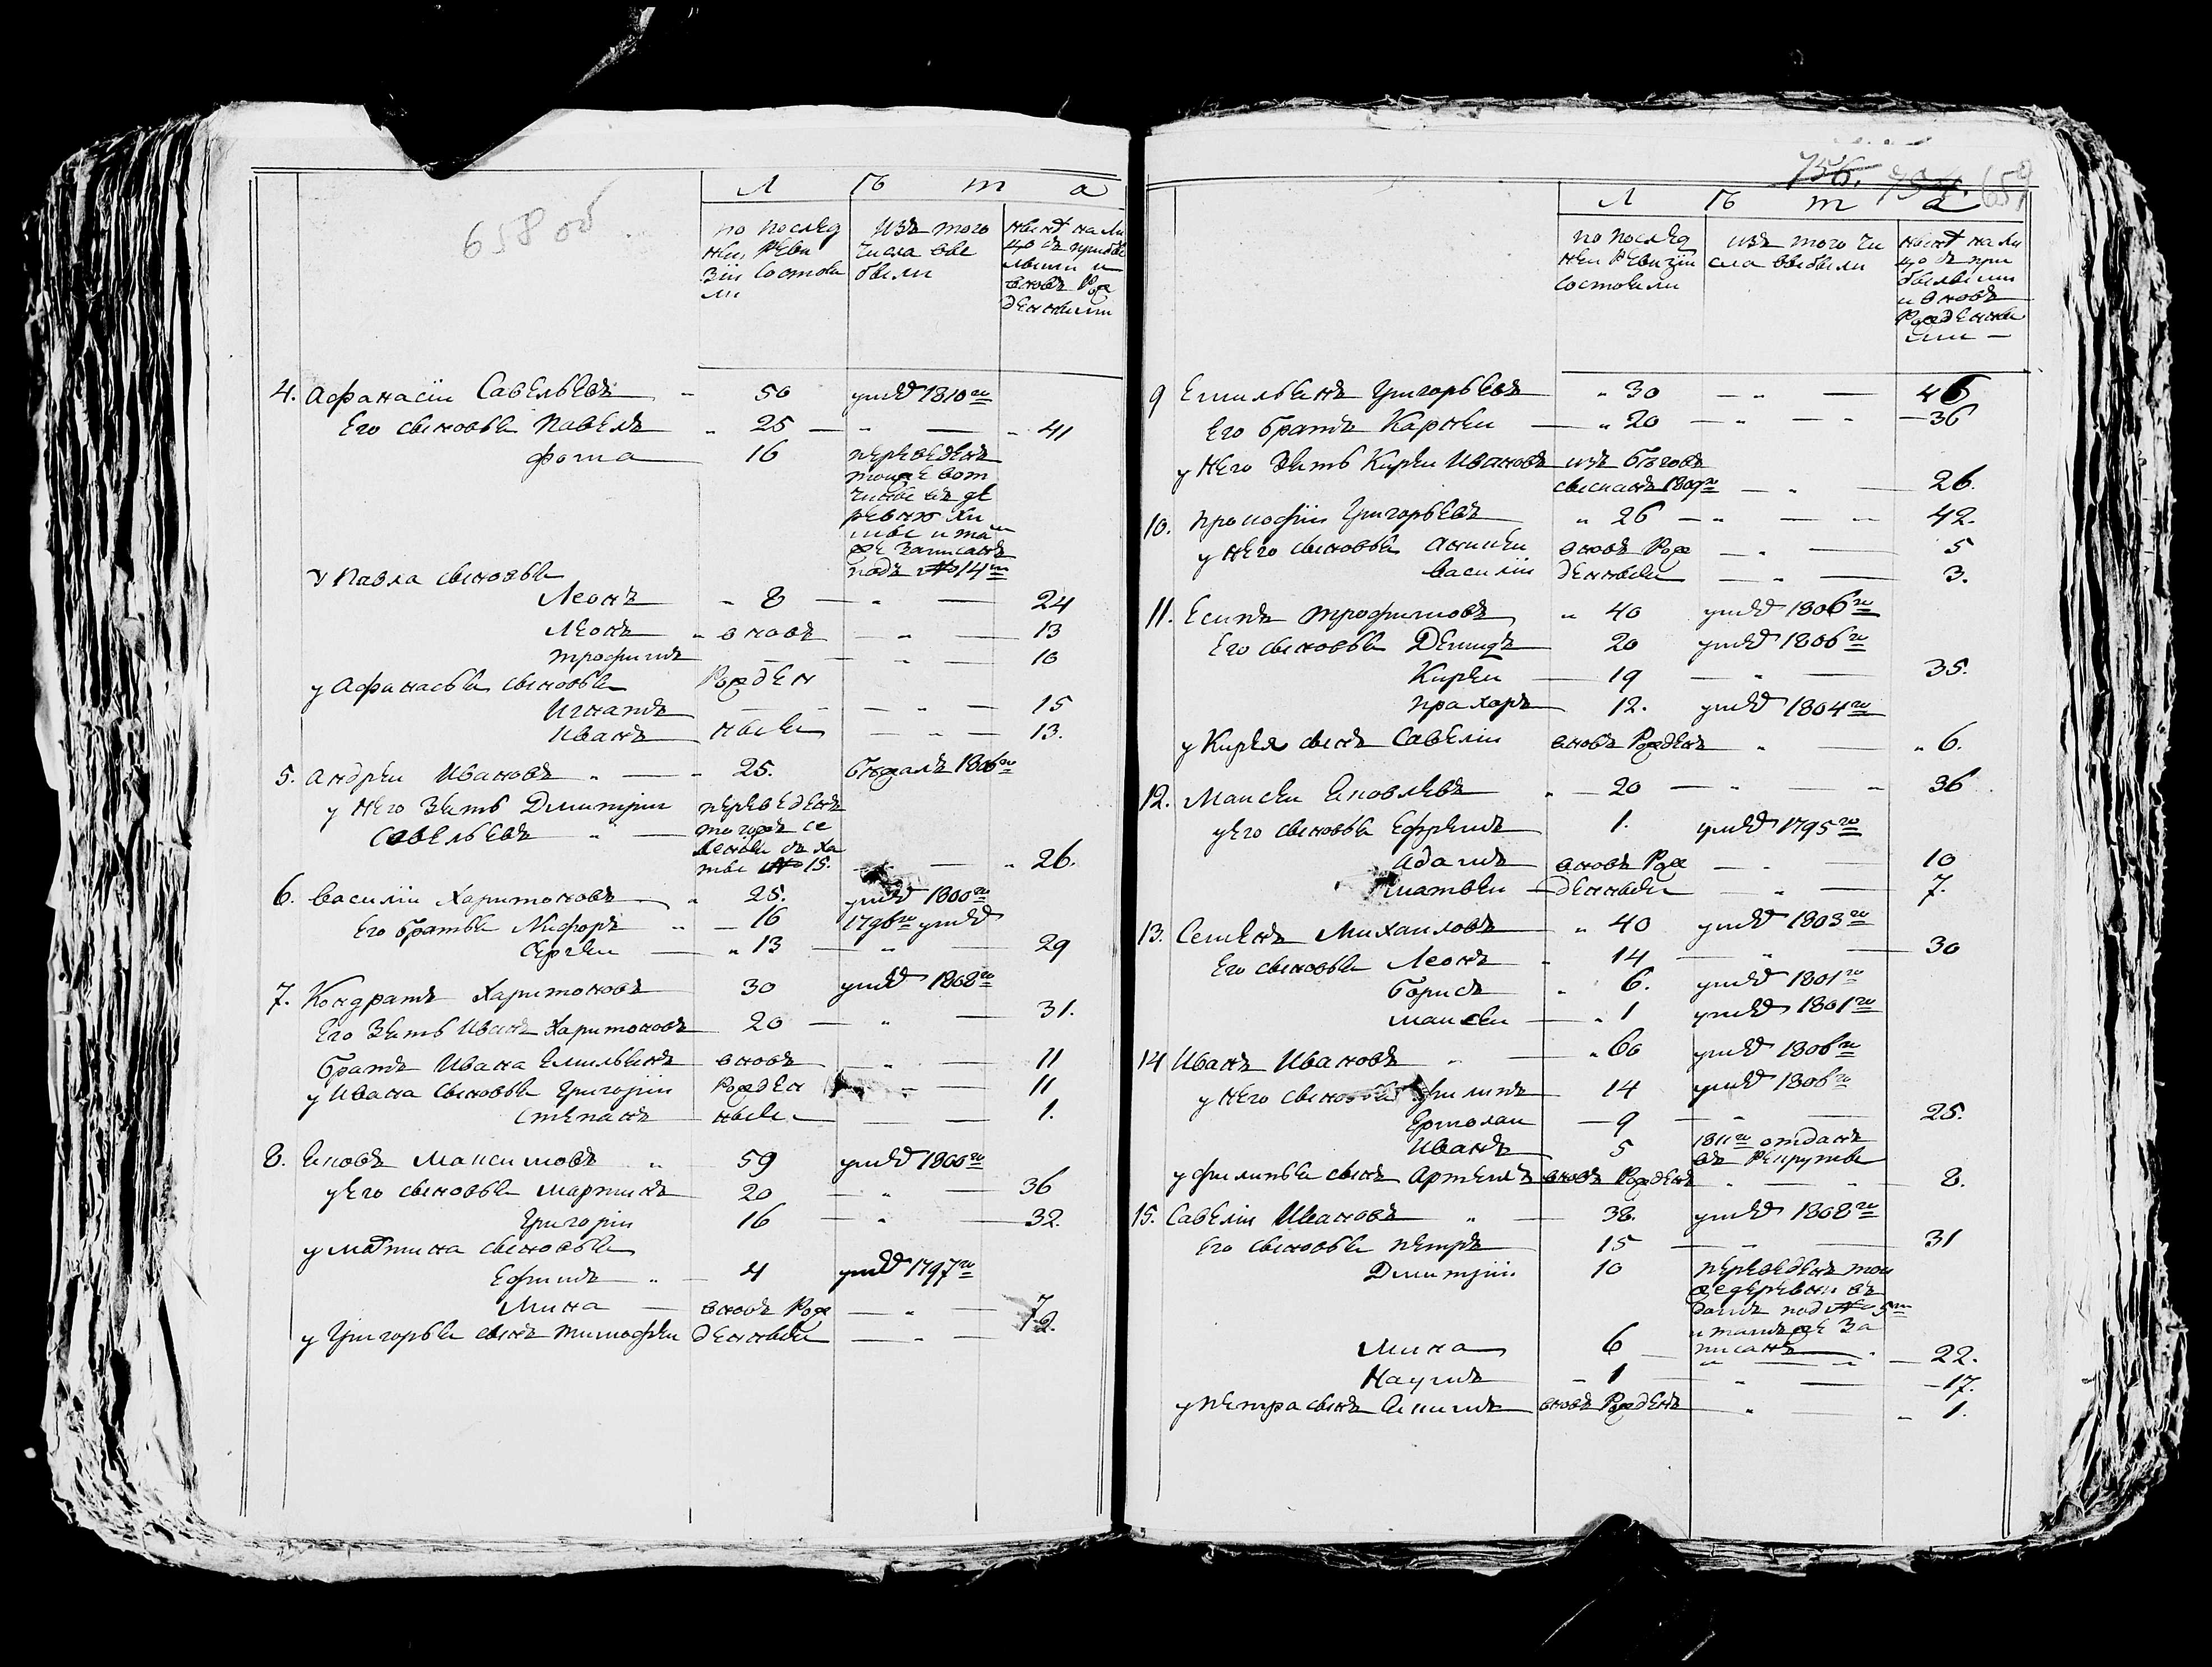 658 об
Л ѣ т а
по послед
ней Реви
зіи состояли
изъ того
числа вы
были
ныне на ли
цо съ прибы
лыми и
вновь Рож
денными
4. Афанасіи Савельевъ 50 умре 1810го
Его сыновья Павелъ 25 41
Фома 16 переведенъ
тоеже вот
чины въ де
ревню
и та
же записанъ
подъ № 14м
у Павла сыновья
Леонъ 8 24
Леонъ вновь 13
трофимъ 10
у Афанасья сыновья Рожден
Игнатъ 15
Иванъ ныеи 13.
5. Андреи Ивановъ 25. бежалъ 1806го
у Него Зять Дмитріи переведенъ
Савельевъ тогожъ се
ления съ ха
ты № 15. 26.
6. Василіи Харитоновъ 25. умре 1800го
Его братья Никифоръ 16 1796го умре
Сергеи 13 29
7. Кондратъ Харитоновъ 30 умре 1808го
Его Зять Иванъ Харитоновъ 20 31.
братъ Ивана Емильянъ вновь 11
у Ивана сыновья Григоріи Рожден 11
Степанъ ныеи 1.
8. Яковъ Максимовъ 59 умре 1800го
у Его сыновья Мартинъ 20 36
Григоріи 16 32.
у Мартина сыновья
Ефимъ 4 умре 1797го
Мина вновь Рож 7
у Григорья сынъ тимофеи денныеи 12.
756. 754. 659
Л ѣ т а
по послед
ней Ревизіи
состояли
изъ того чи
сла выбыли
ныне на ли
цо съ при
былыми
и вновь
Рожденны
ми
9 Емильянъ Григорьевъ 30 46
Его братъ Карнеи 20 36
у Него Зять Киреи Ивановъ изъ бѣговъ
сысканъ 1809го 26.
10. Прокофіи Григорьевъ 26 42.
у Него сыновья Аникеи вновь Рож 5
Василіи денныеи 3.
11. Есипъ трофимовъ 40 умре 1806го
Его сыновья Демидъ 20 умре 1806го
Киреи 19 35.
Прахоръ 12. умре 1804го
у Кирея сынъ Савеліи вновь Рожденъ 6.
12. Маисеи Яковлевъ 20 36
у Его сыновья Ефремъ 1. умре 1795го
Адамъ вновь Рож 10
Матвеи денныеи 7.
13. Семенъ Михаиловъ 40 умре 1803го
Его сыновья Леонъ 14 30
Борисъ 6. умре 1801го
Маисеи 1 умре 1801го
14 Иванъ Ивановъ 60 умре 1806го
у Него сыновья Филипъ 14 умре 1806го
Ермолаи 9 25.
Иванъ 5 1811го отданъ
въ Рекруты
у Филипья сынъ Артемъ вновь Рожденъ 8.
15. Савеліи Ивановъ 38. умре 1808го
Его сыновья Петръ 15 31
Дмитріи 10 переведенъ тои
жедеревни въ
домъ под № 5м
и тамъже за
Мина 6 писанъ 22.
Наумъ 1 17.
у Петра сынъ Якимъ вновь Рожденъ 1.